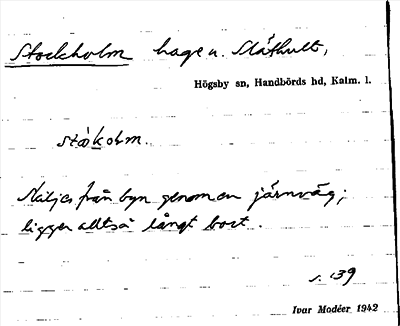 Stockholm hage u. Slåthult,
Högsby sn, Handbörds hd, Kalm. l.
ståkolm.
Skiljes från byn genom en järnväg;
ligger alltså långt bort.
s. 139
Ivar Modéer 1942